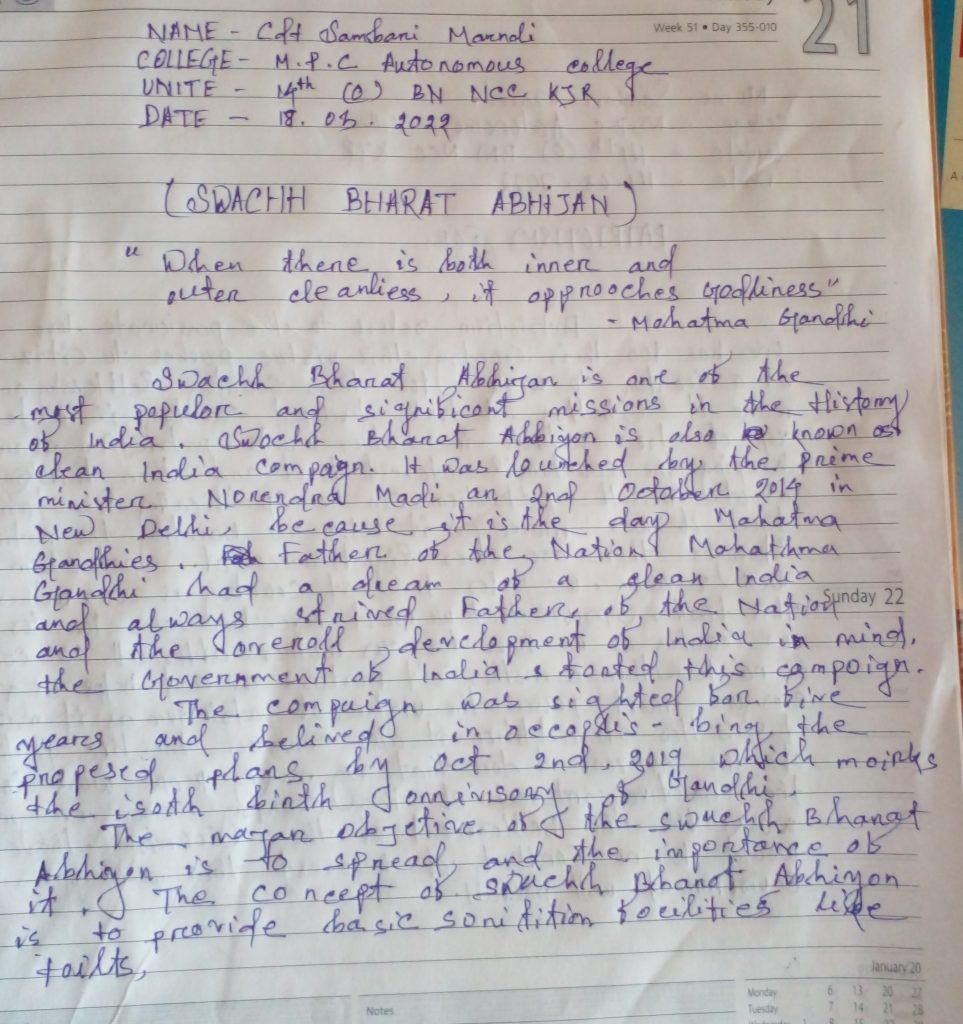 Week 51 • Day 355-010
21
NAME - Cdt Sambari Marndi
COLLEGE - M.P.C Autonomous college
UNITE - 14th (O) BN NCC KJR
DATE - 18. 03. 2022
(SWACHH BHARAT ABHIJAN)
" When there is both inner and
outer cleanliess, it approoches Godliness"
- Mahatma Gandhi
Swachh Bharat Abhijan is one of the
most populor and significont missions in the History
of India. Swochh Bharat Abhiyon is also known as
clean India compaign. It was lounched by the prime
minister Norendra Madi an 2nd October 2014 in
New Delhi, because it is the day Mahatma
Gandhies. Father of the Nation Mahathma
Gandhi had a dream of a clean India
and always strived Father of the Nation
Sunday 22
and the overoll development of India in mind,
the Government of India storted this compoign.
The compaign was sighted for five
years and belived in occoplis-bing the
propesed plans by Oct 2nd, 2019 which moirks
the 150th birth onnivisory of Gandhi.
The mayor objetive of the swochh Bharat
Abhiyon is to spread and the importance of
it. The concept of swachh Bharot Abhiyon
is to provide basic sonitition focilities like
toilts,
January 20
Notes
Monday 6 13 20 27
Tuesday 7 14 21 28